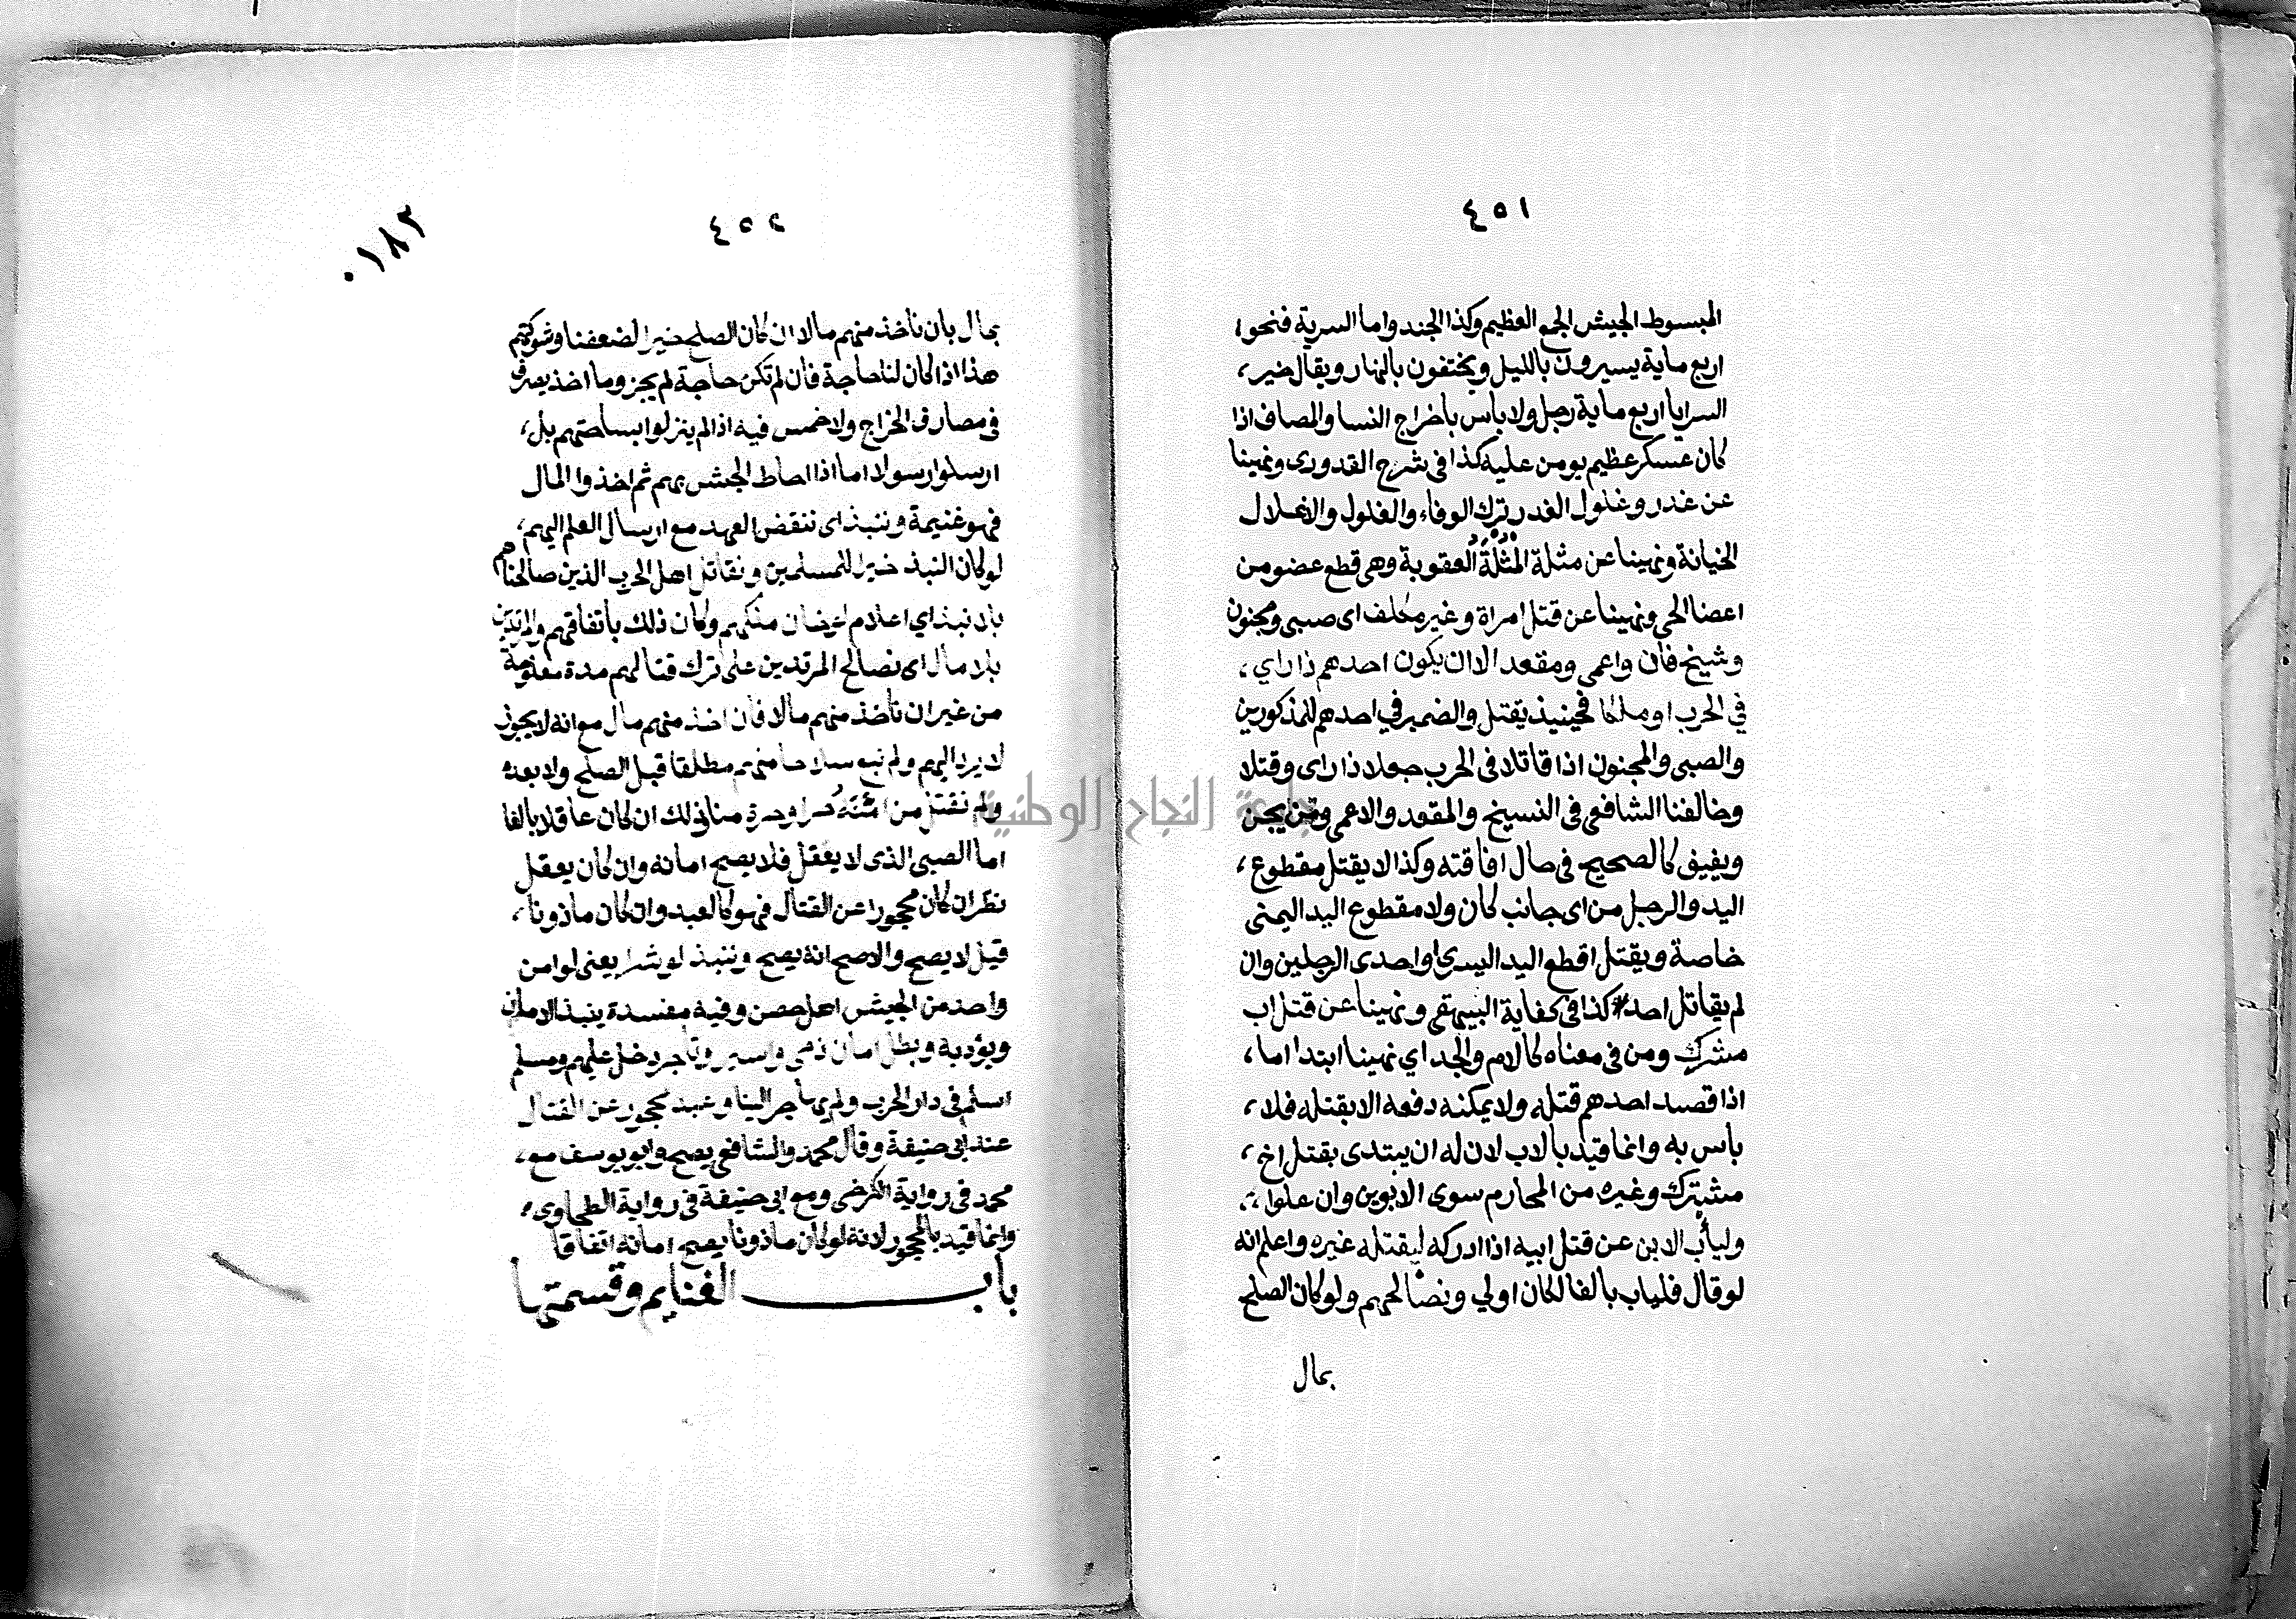 ٤٥١
المبسوط الجيش الجمع العظيم وكذا الجند واما السرية فنحوا
اربع ماية يسيرون بالليل ويختفون بالنهار ويقال خير،
السرايا اربع ماية رجل ولا باس باخراج النسا والمصاف اذا
كان عسكر عظيم يومن عليه كذا فى شرح القدورى ونهينا
عن غدر وغلول الغدر ترك الوفاء والغلول والاغلال
الخيانة ونهينا عن مثلة المُثْلَةُ العقوبة وهى قطع عضو من
اعضا الحى ونهينا عن قتل امراة وغير مكلف اى صبى ومجنون
وشيخ فان واعمى ومقعد الا ان يكون احدهم ذا راي،
في الحرب او ملكا فحينيذ يقتل والضمير في احدهم للمذكورين
والصبى والمجنون اذا قاتلا فى الحرب جعلا ذا راى وقتلا
وخالفنا الشافعى فى الشيخ والمقعد والاعمى ومن يجن
ويفيق كالصحيح فى حال افاقته وكذا لا يقتل مقطوع،
اليد والرجل من اى جانب كان ولا مقطوع اليد اليمنى
خاصة ويقتل اقطع اليد اليسرى او احدى الرجلين وان
لم يقاتل احد كذا فى كفاية البيهقى ونهينا عن قتل اب
مشرك ومن فى معناه كالام والجد اي نهينا ابتدا اما،
اذا قصد احدهم قتله ولا يمكنه دفعه الا بقتله فلا،
باس به وانما قيد بالاب لان له ان يبتدى بقتل اخ،
مشرك وغيره من المحارم سوى الابوين وان علوا،
وليأب الابن عن قتل ابيه اذا ادركه ليقتله غيره واعلم انه
لو قال فلياب بالفا لكان اولي ونصالحهم ولو كان الصلح
بمال
٤٥٢
٠١٨٢
بمال بان ناخذ منهم مالا ان كان الصلح خيرا لضعفنا وشوكتهم
هذا اذا كان لنا حاجة فان لم تكن حاجة لم يجز وما اخذ يصرف
فى مصارف الخراج ولا خمس فيه اذا لم ينزلوا بساحتهم بل،
ارسلوا رسولا اما اذا احاط الجيش بهم ثم اخذوا المال
فهو غنيمة وننبذ اى ننقض العهد مع ارسال العلم اليهم،
لو كان النبذ خيرا للمسلمين ونقاتل اهل الحرب الذين صالحناهم
بلا نبذ اي اعلام لو خان ملكهم وكان ذلك باتفاقهم والمرتدين
بلا مال اى نصالح المرتدين على ترك قتالهم مدة معلومة
من غير ان ناخذ منهم مالا فان اخذ منهم مال مع انه لا يجوز
لا يرد اليهم ولم نبع سلاحا منهم مطلقا قبل الصلح ولا بعده
ولم نقتل من امّنه حر او حرة منا فى ذلك ان كان عاقلا بالغا
اما الصبى الذى لا يعقل فلا يصح امانه وان كان يعقل
نظر ان كان محجورا عن القتال فهو كالعبد وان كان ماذونا،
قيل لا يصح والاصح انه يصح وننبذ لو شرا يعنى لو امن
واحد من الجيش اهل حصن وفيه مفسدة ينبذ الامان
ويؤدبه وبطل امان ذمى واسير وتاجر دخل عليهم ومسلم
اسلم فى دار الحرب ولم يهاجر الينا وعبد محجور عن القتال
عند ابى حنيفة وقال محمد والشافعى يصح وابو يوسف مع،
محمد فى رواية الكرخى ومع ابى حنيفة فى رواية الطحاوى،
وانما قيد بالمحجور لانه لو كان ماذونا يصح امانه اتفاقا
باب الغنايم وقسمتها
جامعة النجاح الوطنية